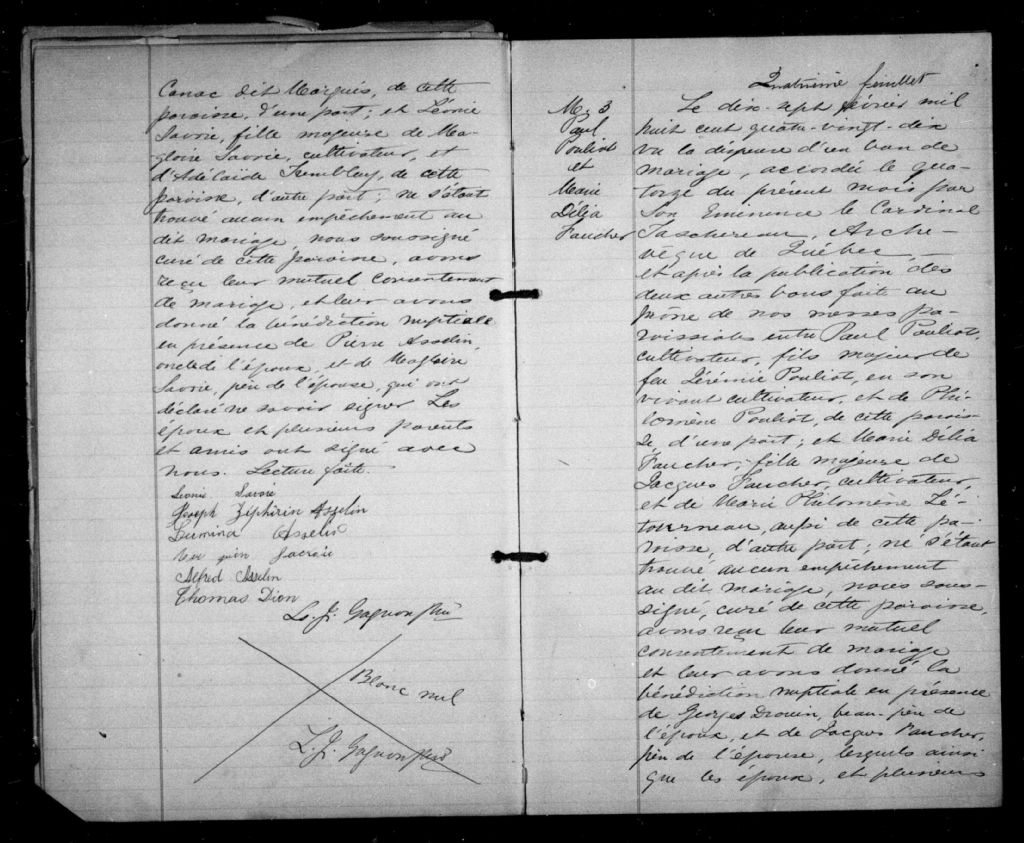 Canac dit Marquis, de cette
paroisse, d'une part; et Léonie
Savoie, fille majeure de Ma-
gloire Savoie, cultivateur, et
d'Adélaïde Tremblay, de cette
paroisse, d'autre part; ne s'étant
trouvé aucun empêchement au
dit mariage, nous soussigné
curé de cette paroisse, avons
reçu leur mutuel consentement
de mariage, et leur avons
donné la bénédiction nuptiale
en présence de Pierre Asselin,
oncle de l'époux, et de Magloire
Savoie, père de l'épouse, qui ont
déclaré ne savoir signer Les
époux et plusieurs parents
et amis ont signé avec
nous. Lecture faite.
Léonie Savoie
Joseph Zéphirin Asselin
Lumina Asselin
Alfred Asselin
Thomas Dion
L. J. Gagnon Ptre
Blanc nul
L. J. Gagnon Ptre
Quatrième feuillet
M. 3
Paul
Pouliot
et
Marie
Délia
Faucher
Le dix-sept février mil
huit cent quatre-vingt-dix
vu la dispense d'un ban de
mariage, accordée le qua-
torze du présent mois par
Son Eminence le Cardinal
Taschereau, Arche-
vêque de Québec,
et après la publication des
deux autres bans faite au
prône de nos messes pa-
roissiales entre Paul Pouliot,
cultivateur, fils majeur de
feu Jérémie Pouliot, en son
vivant cultivateur, et de Phi-
lomène Pouliot, de cette parois-
se, d'une part; et Marie Délia
Faucher, fille majeure de
Jacques Faucher, cultivateur,
et de Marie Philomène Lé-
tourneau, aussi de cette pa-
roisse, d'autre part; ne s'étant
trouvé aucun empêchement
au dit mariage, nous sous-
signé, curé de cette paroisse,
avons reçu leur mutuel
consentement de mariage
et leur avons donné la
bénédiction nuptiale en présence
de Georges Drouin, beau-père de
l'époux, et de Jacques Faucher,
père de l'épouse, lesquels ainsi
que les époux, et plusieurs